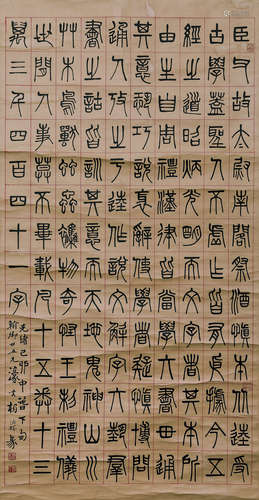 臣父故太尉南閣祭酒慎本從逵受
古學蓋聖人不空作皆有依據今五
經之道昭炳光明而文字者其本所
由生自周禮漢律皆當學六書貫通
其意恐巧說衺辭使學者疑慎博問
通人考之於逵作說文解字六藝群
書之詁皆訓其意而天地鬼神山川
艸木鳥獸蚰蟲雜物奇怪王制禮儀
世間人事莫不畢載凡十五卷十三
萬三千四百四十一字
光緒己卯中呂下旬
翰卿大人